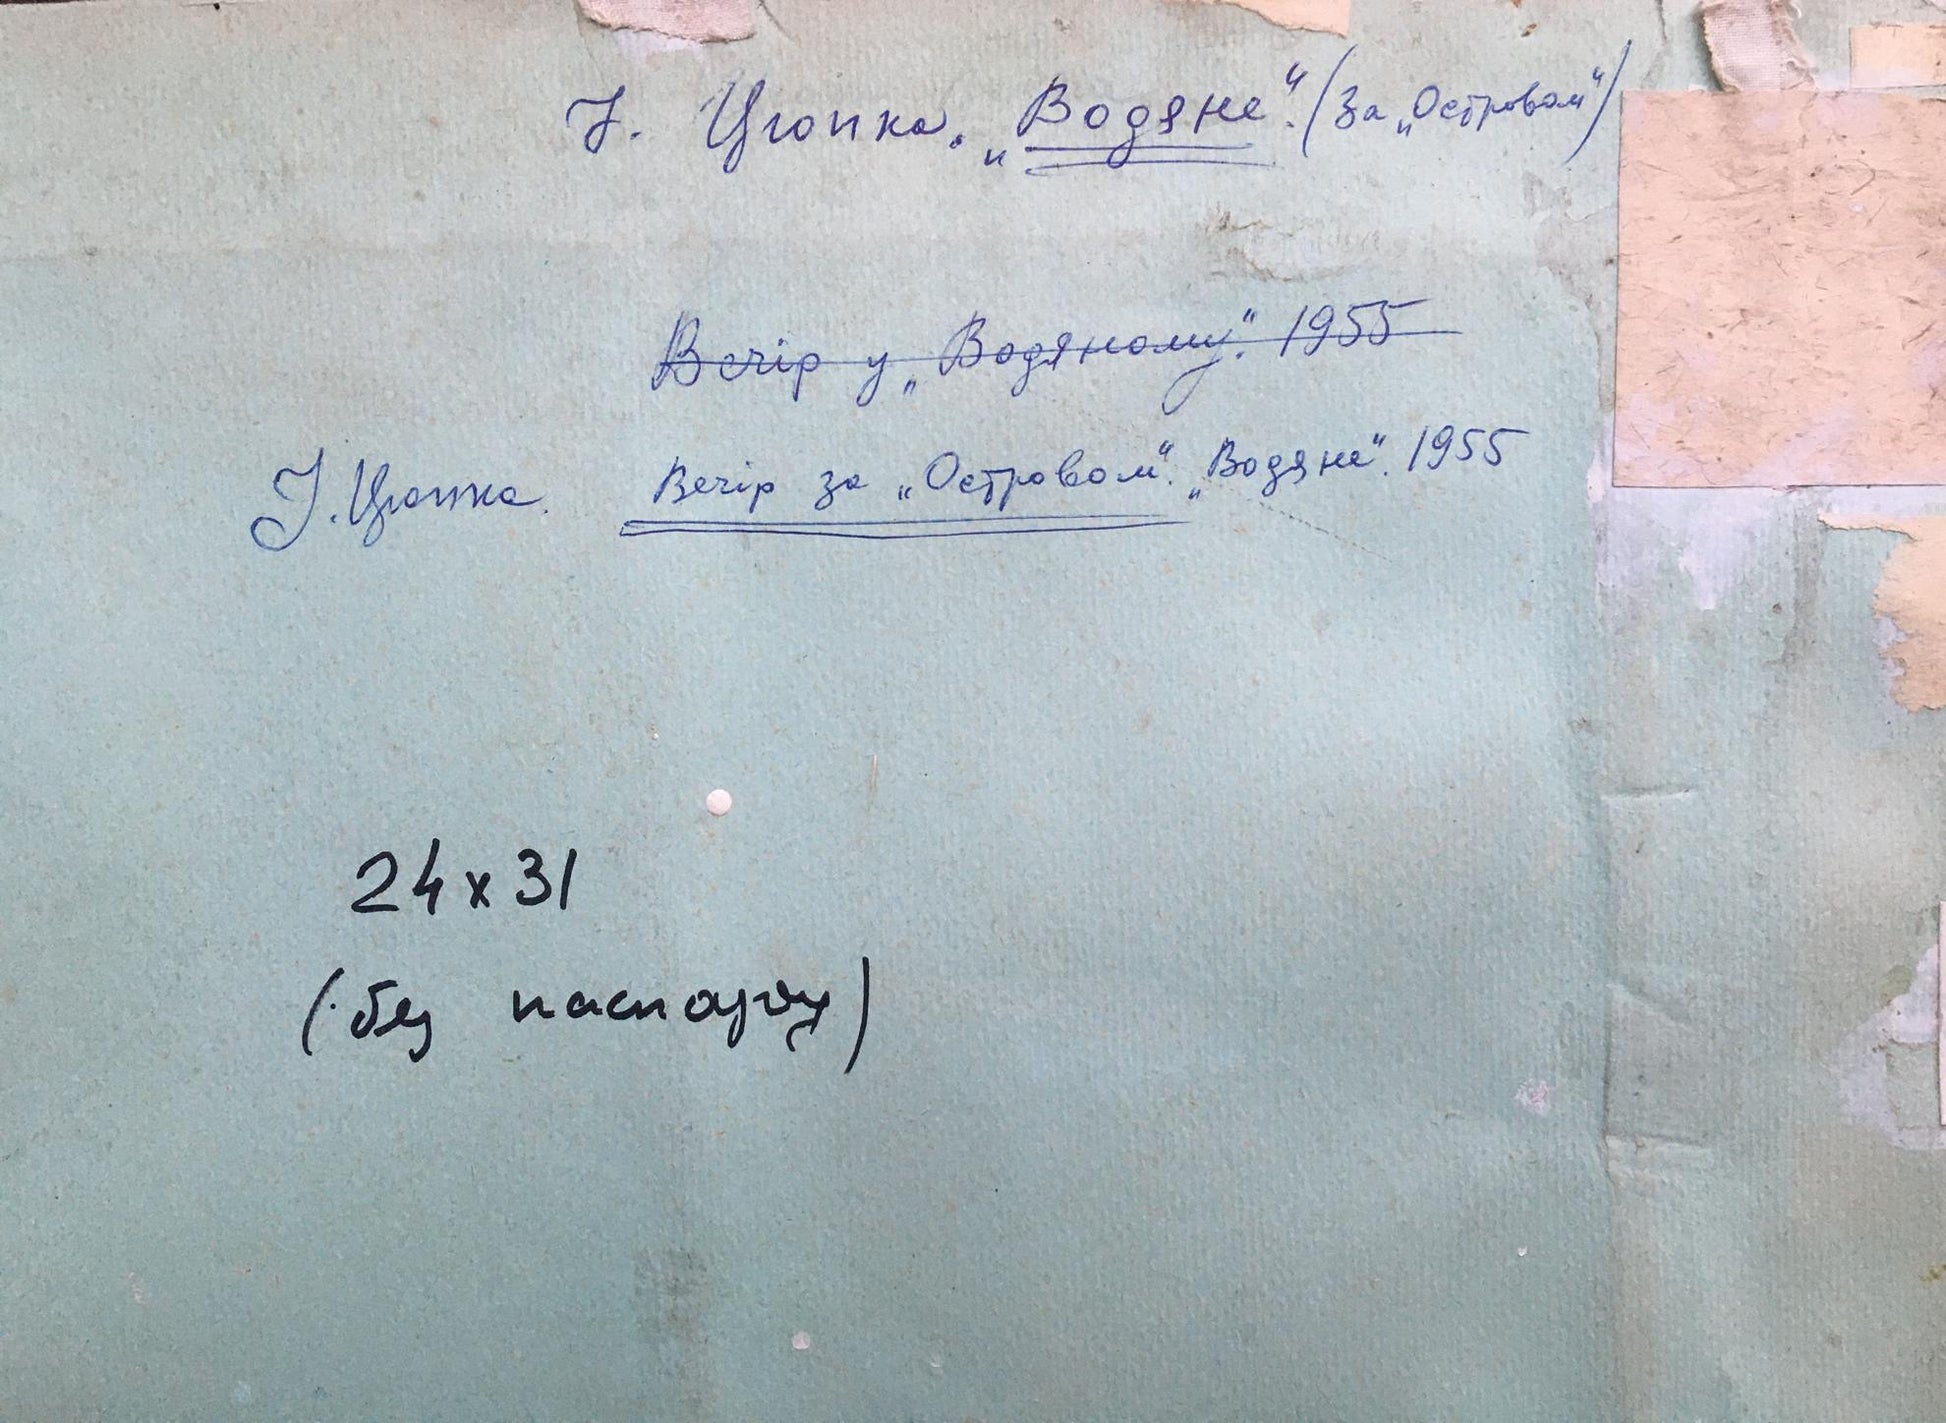 І. Цюпка. „Водяне“. (За „Островом“)
Вечір у „Водяному“. 1955
І. Цюпка. Вечір за „Островом“. „Водяне“. 1955
24 х 31
(без паспарту)